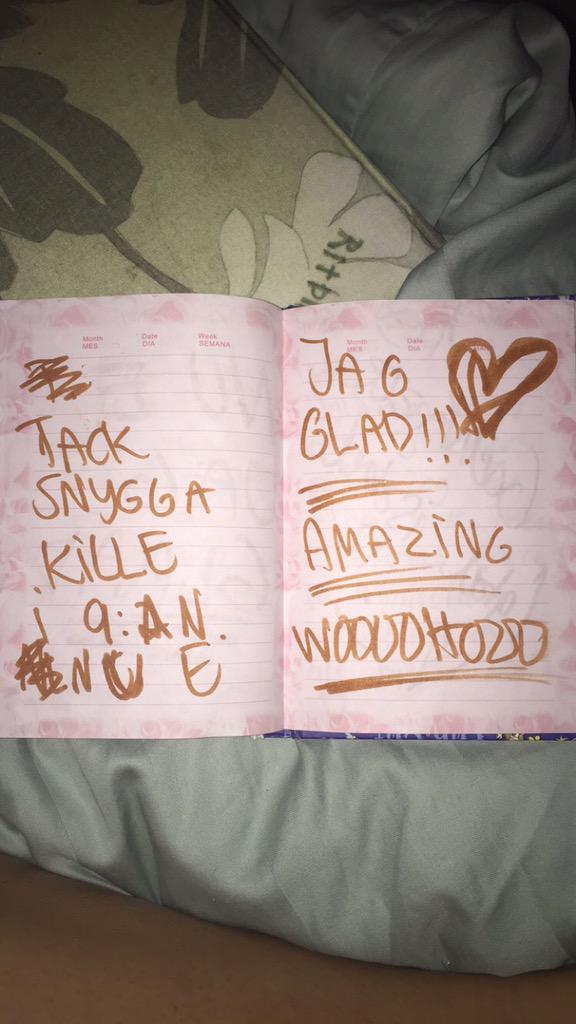 Ritbl
Month Date Week
MES DIA SEMANA
TACK
SNYGGA
KILLE
i 9:AN.
NU E
Month Date
MES DIA
JAG
GLAD!!!
AMAZING
WOOUOHOZOO